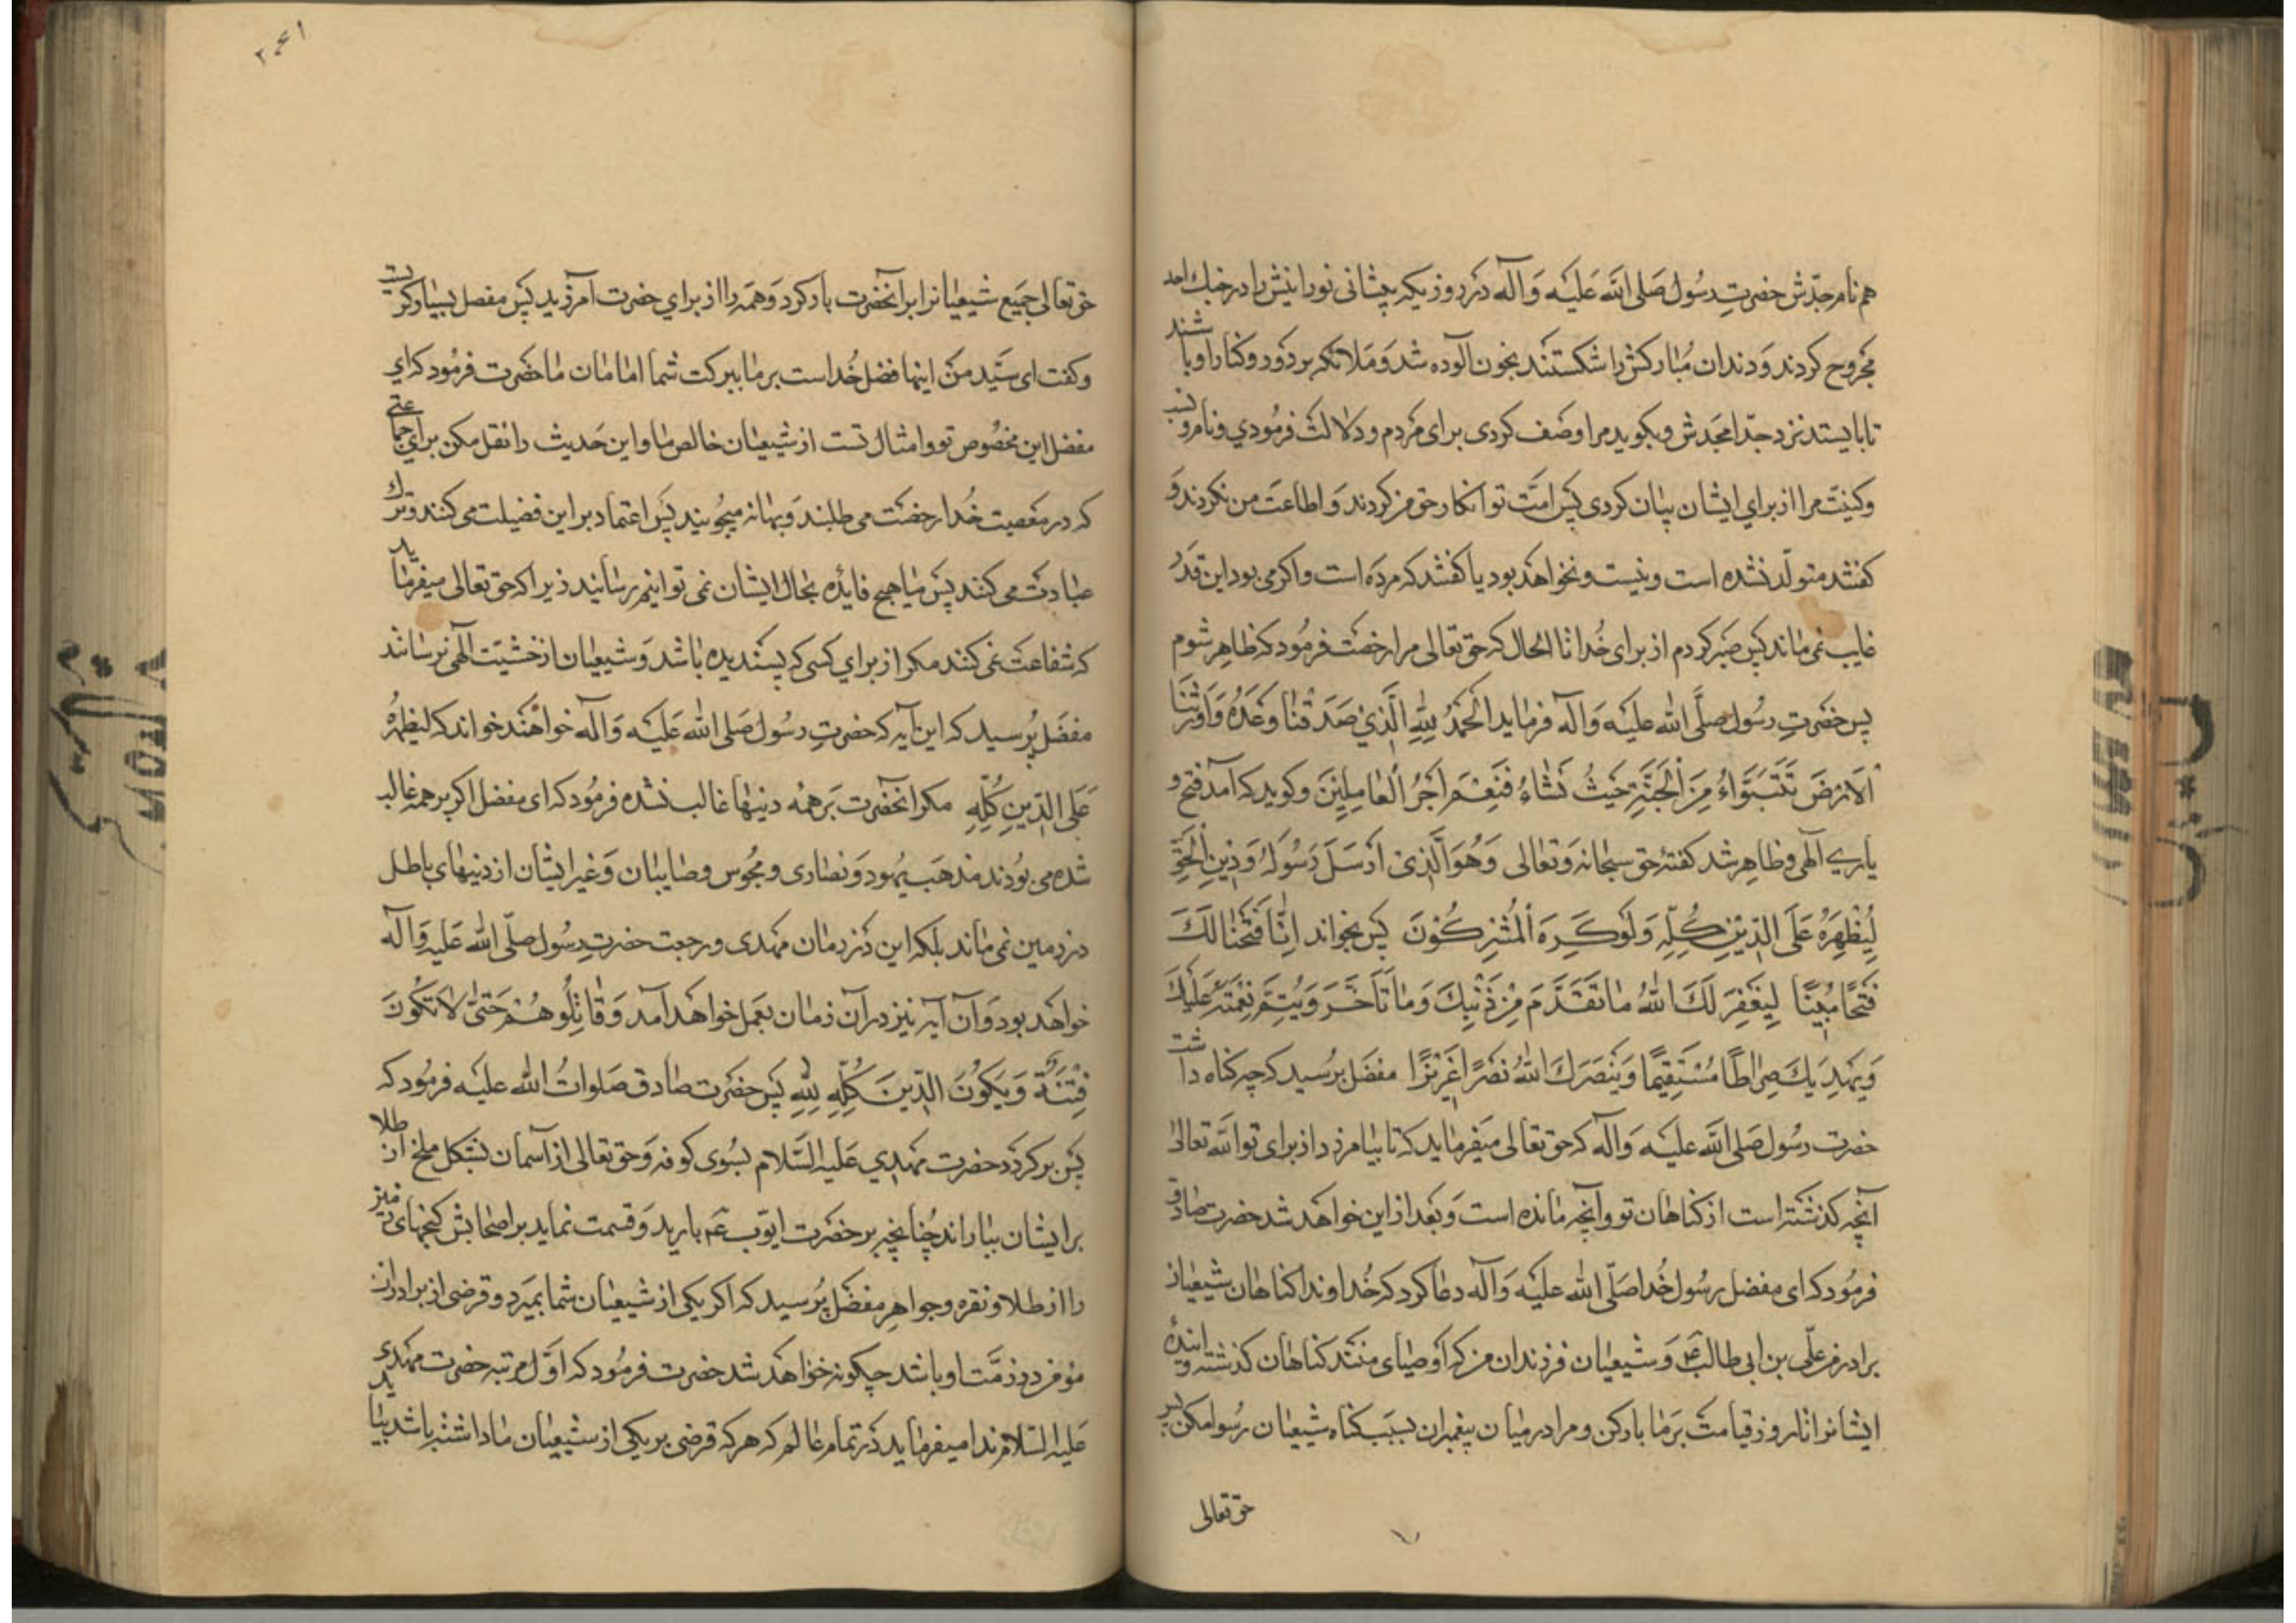 هم نام جدّش حضرتِ رسُول صَلی اللّه عَلیَه وَ آله در روزیکه پیشانی نورانیش را در جنك احد
مجروح کردند وَ دندان مُبارکش را شکستند بخون آلوده شد وَ ملائکه بر دَور و کنار او باشند
تا بایستد نزد جدّ امجَدش و بکوید مرا وصَف کردی برای مَردم و دلالت فرمُودي و نام و نسب
و کنیَت مرا از برای ایشان بیان کردی پس امّت تو انکار حق من کردند وَ اطاعَت من نکردند وَ
کفتند متولّد نشده است و نیست و نخواهد بود یا کفتند که مرده است و اکر می بود این قَدر
غایب نمی ماند پس صَبر کردم از برای خُدا تا الحال که حق تعالی مرا رخصَت فرمُود که ظاهر شوم
پس حضَرتِ رسُول صلَّی الله علیَه وَ آله فرماید الحَمدُ لِلّهِ الَّذي صَدَقَنا وَعدَهُ وَ اَورَثَنَا
الاَرضَ نَتَبَوَّاءُ مِنَ الجَنَّةِ حَیثُ نَشاءُ فَنِعمَ اَجرُ العامِلینَ و کوید که آمد فتح و
یاري آلهی و ظاهر شد کفتهٔ حق سبحانه وَ تعالی وَ هُوَ الَّذی اَرسَلَ رَسُولَهُ وَ دینِ الحَقِّ
لِیُظهِرَهُ عَلَی الدّینِ کُلِّهِ وَ لَو کَرِهَ المُشرِکُونَ پس بخواند اِنّا فَتَحنا لَكَ
فَتحًا مُبینًا لِیَغفِرَ لَكَ اللهُ ما تَقَدَّمَ مِن ذَنبِكَ وَ ما تَأَخَّرَ وَ یُتِمَّ نِعمَتَهُ عَلَیكَ
وَ یَهدِیَكَ صِراطًا مُستَقیمًا وَ یَنصُرَكَ اللهُ نَصرًا عَزیزًا مفضّل پرُسید که چه کناه داشت
حضرت رسُول صَلی اللّه علیَه وَ آله که حق تعالی میَفرماید که تا بیامرزد از برای تو اللّه تعالی
آنچه کذشته است از کناهان تو و آنچه مانده است وَ بَعد از این خواهد شد حضرت صادق
فرمُود که ای مفضل رسُول خُدا صَلّی اللّه علیَه وَ آله دعا کرد که خُداوندا کناهان شیعیان
برادرم علّی بن ابی طالبؑ وَ شیعیان فرزندان من که اَوصیای منند کناهان کذشته و آیندهٔ
ایشانرا تا روز قیامتَ بَر ما بار کن و مرا در میان پیغمبران بسبَب کناه شیعیان رسُوا مکن پس
حق تعالی
۲۶۱
حق تعالی جمَیع شیعیانرا بر آنحضرت بار کرد وَ همَه را از برای حضرت آمرزید پس مفصل بسیار کریست
و کفت ای سیَّد من اینها فضل خُدا است بر ما ببرکت شما امامان ما حضَرت فرمُود که اي
مفضل این مخصُوص تو و امثال تست از شیعیان خالص ما و این حَدیث را نقل مکن برای جماعتی
که در معَصیت خُدا رخصَت می طلبند وَ بهانه میجُویند پس اعتماد بر این فضیلت می کنند و ترك
عبادت می کنند پس ما هیچ فایُده بحال ایشان نمی توانیم رسانید زیرا که حق تعالی میفرماید
که شفاعتَ نمی کنند مکر از برای کسی که پسندیده باشد وَ شیعیان از خشیت آلهی ترسانند
مفضَل پُرسید که این آیه که حضرتِ رسُول صَلی الله عَلیَه وَ آله خواهند خواند که لیظهرهُ
عَلَی الدّینِ کُلِّهِ مکر آنحضرت بَر همَه دینها غالب نشده فرمُود که ای مفضل اکر بر همه غالب
شده می بوُدند مذهَب یهُود وَ نصاری و مجُوس و صایبان وَ غیر ایشان از دینهای باطل
در زمین نمی ماند بلکه این در زمان مَهدی و رجعت حضرت رسُول صَلّی الله عَلیه وَ آله
خواهَد بود وَ آن آیه نیز در آن زمان بعَمل خواهد آمد وَ قاتِلُوهُم حَتّی لا تَکُونَ
فِتنَةٌ وَ یَکُونَ الدّینَ کُلِّهِ لِلّهِ پس حضَرت صادق صَلواتُ الله علیَه فرمُود که
پس بر کرَدد حضرت مَهدي عَلیه السَّلام بسُوی کوفه وَ حق تعالی از آسمان بشکل ملخ از طلا
بر ایشان بباراند چُنانچه بر حضرت ایّوبؑ بارید وَ قسمت نماید بر اصحابش کنجهای زمین
را از طلا و نقره و جواهِر مفضَل پرُسید که اکر یکی از شیعیان شما بمیرَد و قرضی از برادران
مؤمن در ذمَّت او باشد چکونه خواهَد شد حضرت فرمُود که اوَّل مرتبه حضرت مَهدی
علیه السّلام ندا میفرماید در تمام عالم که هر که قرضی بر یکی از شیعیان ما داشته باشد بیاید